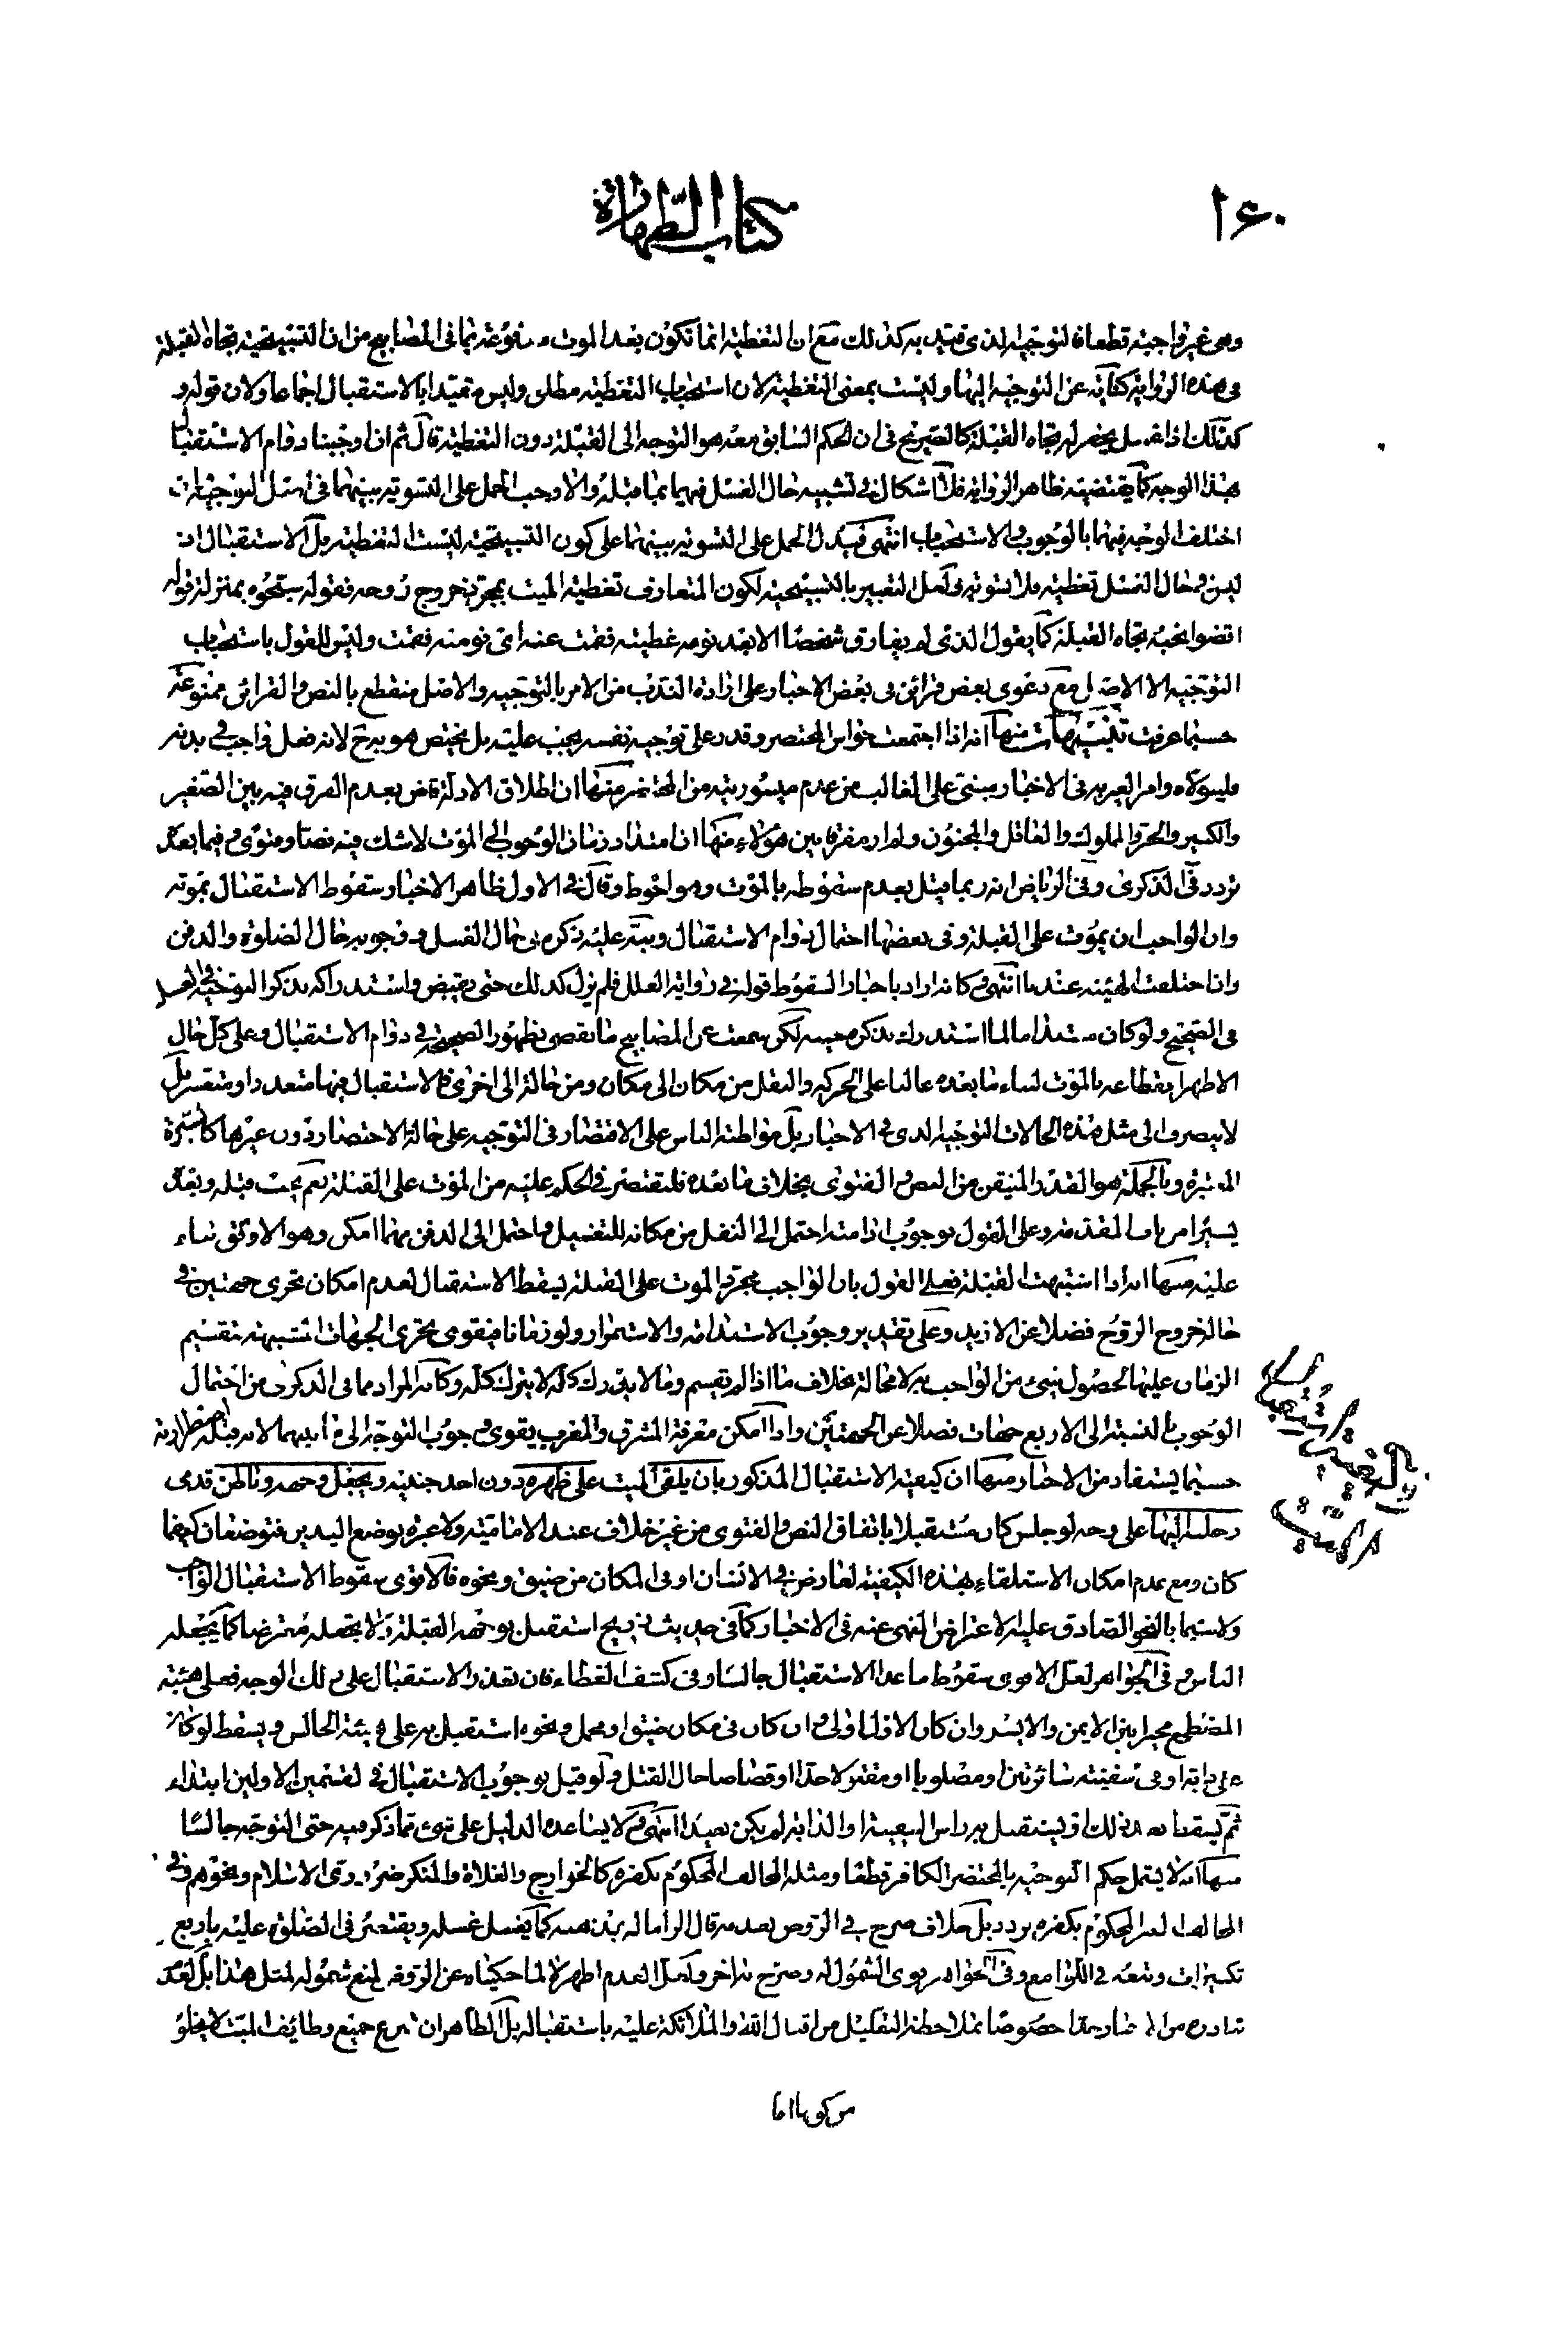 ١٤٠
كتاب الطهارة
وهي غير واجبة قطعا فالتوجيه الذي قيد به كذلك مع ان التغطية انما تكون بعد الموت مدفوعة بما في المصابيح من ان التسجية تجاه القبلة
في هذه الرواية كناية عن التوجيه اليها وليست بمعنى التغطية لان استحباب التغطية مطلق وليس مقيدا بالاستقبال اجماعا ولان قوله و
كذلك اذا غسل يحفر له تجاه القبلة كالصريح في ان الحكم السابق معه هو التوجه الى القبلة دون التغطية قال ثم ان اوجبنا دوام الاستقبال
بهذا الوجه كما يقتضيه ظاهر الرواية فلا اشكال في تشبيه حال الغسل فيهما بما قبله والا وجب الحمل على التسوية بينهما في اصل التوجيه وان
اختلف الوجه فيهما بالوجوب والاستحباب انتهى فيدل الحمل على التسوية بينهما على كون التسجية ليست التغطية بل الاستقبال اذ
ليس في حال الغسل تغطية فلا تسوية ولعل التعبير بالتسجية لكون المتعارف تغطية الميت بمجرد خروج روحه فقوله سجوه بمنزلة قوله
اقضوا نحبه تجاه القبلة كما يقول الذي لم يفارق شخصا الا بعد نومه غطيته فقمت عنه اي نومته فقمت وليس للقول باستحباب
التوجيه الا الاصل مع دعوى بعض قرائن في بعض الاخبار على ارادة الندب من الامر بالتوجيه والاصل منقطع بالنص والقرائن ممنوعة
حسبما عرفت تنبيهات منها انه اذا اجتمعت حواس المحتضر وقدر على توجيه نفسه يجب عليه بل يختص هو به ح لانه فعل واجب في بدنه
فليتولاه وامر الغير به في الاخبار مبني على الغالب من عدم ميسوريته من المحتضر ومنها ان اطلاق الادلة قاض بعدم الفرق فيه بين الصغير
والكبير والحر والمملوك والعاقل والمجنون ولم ار مفرقا بين هؤلاء ومنها ان امتداد زمان الوجوب الى الموت لا شك فيه نصا وفتوى وفيما بعده
تردد في الذكرى وفي الرياض انه ربما قيل بعدم سقوطه بالموت وهو احوط وقال في الاول ظاهر الاخبار سقوط الاستقبال بموته
وان الواجب ان يموت على القبلة وفي بعضها احتمال دوام الاستقبال ونبه عليه ذكره في حال الغسل ووجوبه حال الصلوة والدفن
وان اختلفت الهيئة عندنا انتهى وكانه اراد باخبار السقوط قوله في رواية العلل فلم يزل كذلك حتى يقبض واستدراكه بذكر التوجيه في الغسل
في الصحيح ولو كان مستداما لما استدرك بذكره حينه لكن سمعت عن المصابيح ما يقضي بظهور الصحيح في دوام الاستقبال وعلى كل حال
الاظهر انقطاعه بالموت لبناء ما بعده غالبا على الحركة والنقل من مكان الى مكان ومن حالة الى اخرى فالاستقبال فيها متعذر او متعسر بل
لا ينصرف الى مثل هذه الحالات التوجيه الذي في الاخبار بل مواظبة الناس على الاقتصار في التوجيه على حالة الاحتضار دون غيرها كالسيرة
المعتبرة وبالجملة هو القدر المتيقن من النص والفتوى بخلاف ما بعده فليقتصر في الحكم عليه من الموت على القبلة نعم يجب قبله وبعده
يسيرا من باب المقدمة وعلى القول بوجوب ادامته احتمل الى النقل من مكانه للتغسيل واحتمل الى الدفن مهما امكن وهو الاوفق بناء
عليه ومنها انه اذا اشتبهت القبلة فعلى القول بان الواجب مجرد الموت على القبلة ليسقط الاستقبال لعدم امكان تحري جهتين في
حالة خروج الروح فضلا عن الازيد وعلى تقدير وجوب الاستدامة والاستمرار ولو زمانا فيقوى تحري الجهات المشتبهة بتقسيم
الزمان عليها لحصول شيء من الواجب به لا محالة بخلاف ما اذا لم يقسم وما لا يدرك كله لا يترك كله وكانه المراد مما في الذكرى من احتمال
الوجوب بالنسبة الى الاربع جهات فضلا عن الجهتين واذا امكن معرفة المشرق والمغرب يقوى وجوب التوجه الى ما بينهما لانه قبلة اضطرارية
حسبما يستفاد من الاخبار ومنها ان كيفية الاستقبال المذكور بان يلقى الميت على ظهره دون احد جنبيه ويجعل وجهه وباطن قدمي
رجليه اليها على وجه لو جلس كان مستقبلا باتفاق النص والفتوى من غير خلاف عند الامامية ولا عبرة بوضع اليدين فتوضعان كيفما
كان ومع عدم امكان الاستلقاء بهذه الكيفية لعارض في الانسان او في المكان من ضيق ونحوه فالاقوى سقوط الاستقبال الواجب
ولاسيما بالنحو الصادق عليه الاعتراض المنهي عنه في الاخبار كما في حديث ذبيح استقبل بوجهه القبلة ولا يجعله معترضا كما يجعله
الناس وفي الجواهر لعل الاقوى سقوط ما عدا الاستقبال جالسا وفي كشف الغطاء فان تعذر الاستقبال على ذلك الوجه فعلى هيئة
المضطجع مخيرا بين الايمن والايسر وان كان الاول اولى وان كان في مكان ضيق او محمل ونحوه استقبل به على هيئة الجالس ويسقط لو كان
على دابة او في سفينة سائرتين او مصلوبا او مفترلا حدا او قصاصا حال القتل ولو قيل بوجوب الاستقبال في القسمين الاولين ابتداء
ثم يسقط بعد ذلك او ليستقبل به راس السفينة او الدابة لم يكن بعيدا انتهى ولا يساعده الدليل على شيء مما ذكر فيه حتى التوجه جالسا
ومنها انه لا يشمل حكم التوجيه بالمحتضر الكافر قطعا ومثله المخالف المحكوم بكفره كالخوارج والغلاة والمنكر ضروري الاسلام ونحوهم وفي
المخالف الغير المحكوم بكفره تردد بل خلاف صرح في الروض بعدمه قال الزاما له بمذهبه كما يغسل غسله ويقتصر في الصلوة عليه باربع
تكبيرات وتبعه في اللوامع وفي الجواهر يقوى الشمول له وصرح به اخر ولعل العدم اظهر لا لما حكيناه عن الروض لمنع شموله لمثل هذا بل لعدم
تبادره من الاخبار جدا خصوصا بملاحظة التعليل من اقبال الله والملائكة عليه باستقباله بل الظاهر ان تشريع جميع وظائف الميت لا يخلو
من كونها اما